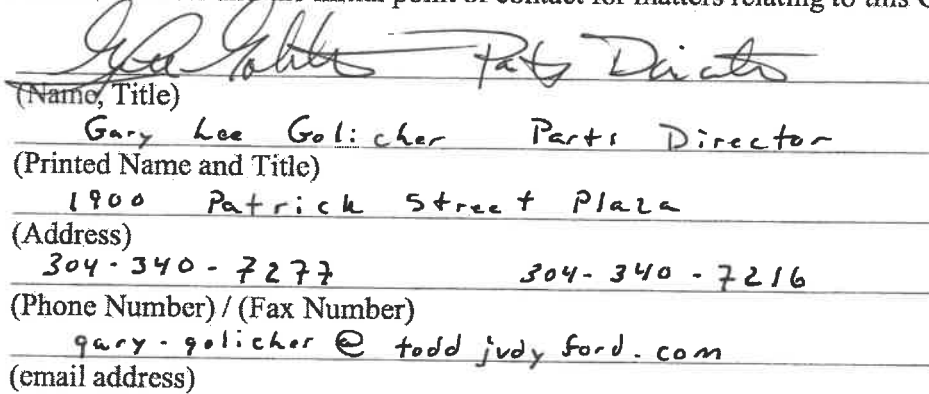 point of contact for matters relating to this
Parts Director
(Name, Title)
Gary Lee Golicher Parts Director
(Printed Name and Title)
1900 Patrick Street Plaza
(Address)
304-340-7277 304-340-7216
(Phone Number) / (Fax Number)
gary-golicher@toddjudyford.com
(email address)